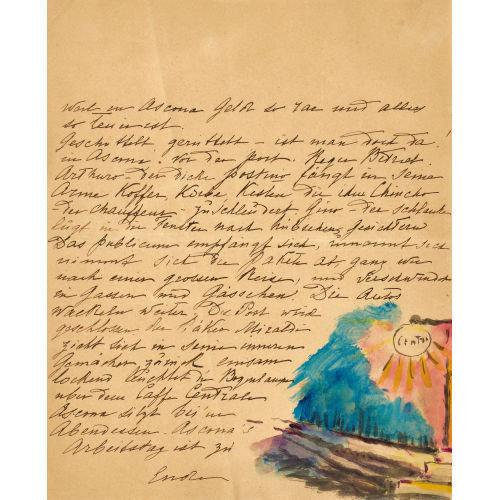 weil in Ascona Geld so rar und alles
so teuer ist.
Geschüttelt, gerüttelt – ist man doch da!
in Ascona! Vor der Post. Reger Betrieb.
Arturo – der dicke postino fängt in seine
Arme Koffer, Körbe, Kisten die ihm Chincho
– der Chauffeur – zuschleudert Gino – der schlanke
lugt in die Fenster nach Gesichtern
Das publicum empfängt sich, umarmt sich
nimmt sich die Pakete ab, ganz wie
nach einer grossen Reise, und verschwindet
in Gassen und Gässchen! Die Autos
wackeln weiter, Die Post wird
geschlossen, der
zieht sich in seine inneren
Gemächer zurück, einsam
lockend leuchtet die Bogenlampe
über dem Caffe Centrale
Ascona sitzt bei'm
Abendessen. Ascona's
Arbeitstag ist zu
Ende
Centrale